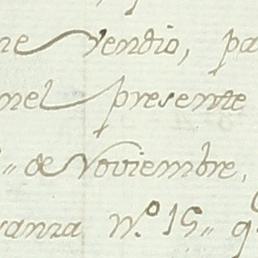 ne Vendio, pa
nel presente
de Noviembre,
vanza N.º 15,, q